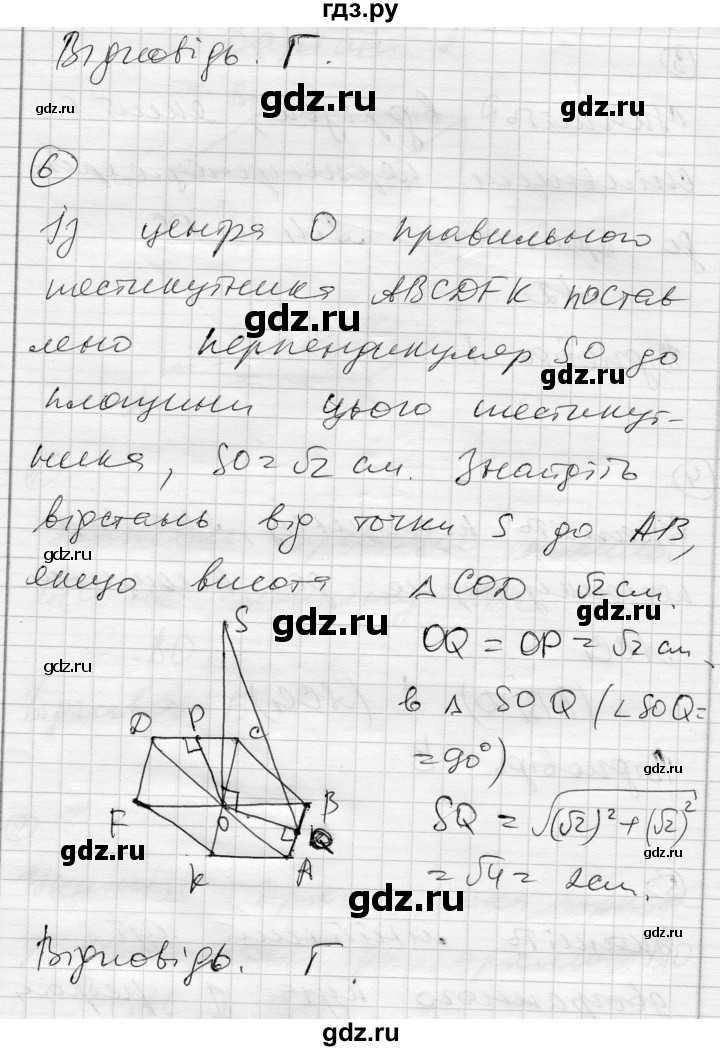 гдз.ру
Відповідь. Г.
gdz.ru
gdz.ru
gdz.ru
6
Із центра О правильного
шестикутника ABCDFK постав
gdz.ru
лено перпендикуляр SO до
gdz.ru
площини цього шестикут-
ника, SO = √2 см. Знайдіть
відстань від точки S до AB,
gdz.ru
якщо висота Δ COD √2 см.
gdz.ru
gdz.ru
S
OQ = OP = √2 см
gdz.ru
в Δ SOQ (∠SOQ =
D P C
= 90°)
F O B
SQ = √((√2)² + (√2)²)
Q
K A
= √4 = 2 см.
gdz.ru
gdz.ru
gdz.ru
Відповідь. Г.
gdz.ru
gdz.ru
gdz.ru
гдз.ру